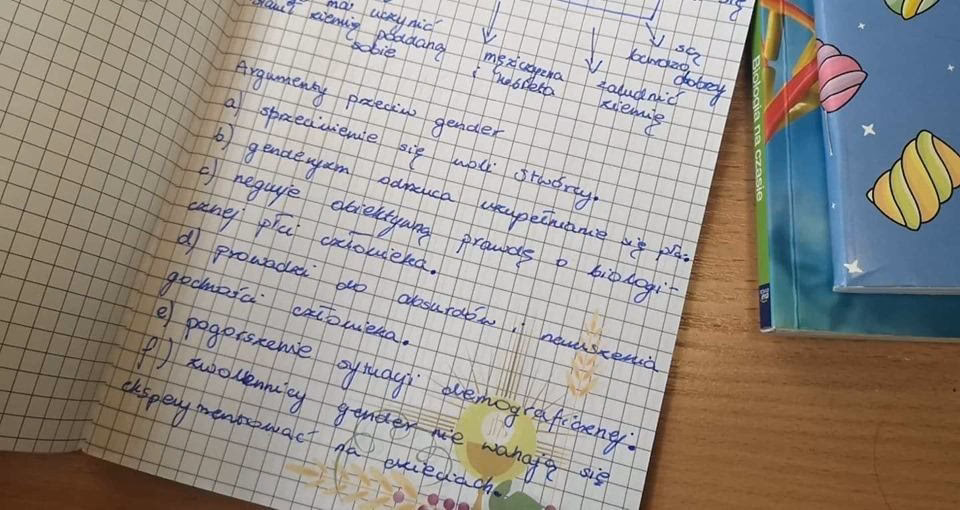 ma uczynić
ziemię poddaną
sobie
mężczyzna
i kobieta
zaludnić
ziemię
są
bardzo
dobrzy
się
Argumenty przeciw gender
a) sprzeciwienie się woli Stwórcy.
b) genderyzm odrzuca uzupełnianie się płci.
c) neguje obiektywną prawdę o biologi-
cznej płci człowieka.
d) prowadzi do absurdów i naruszenia
godności człowieka.
e) pogorszenie sytuacji demograficznej.
f) zwolennicy gender nie wahają się
eksperymentować na dzieciach.
Biologia na czasie